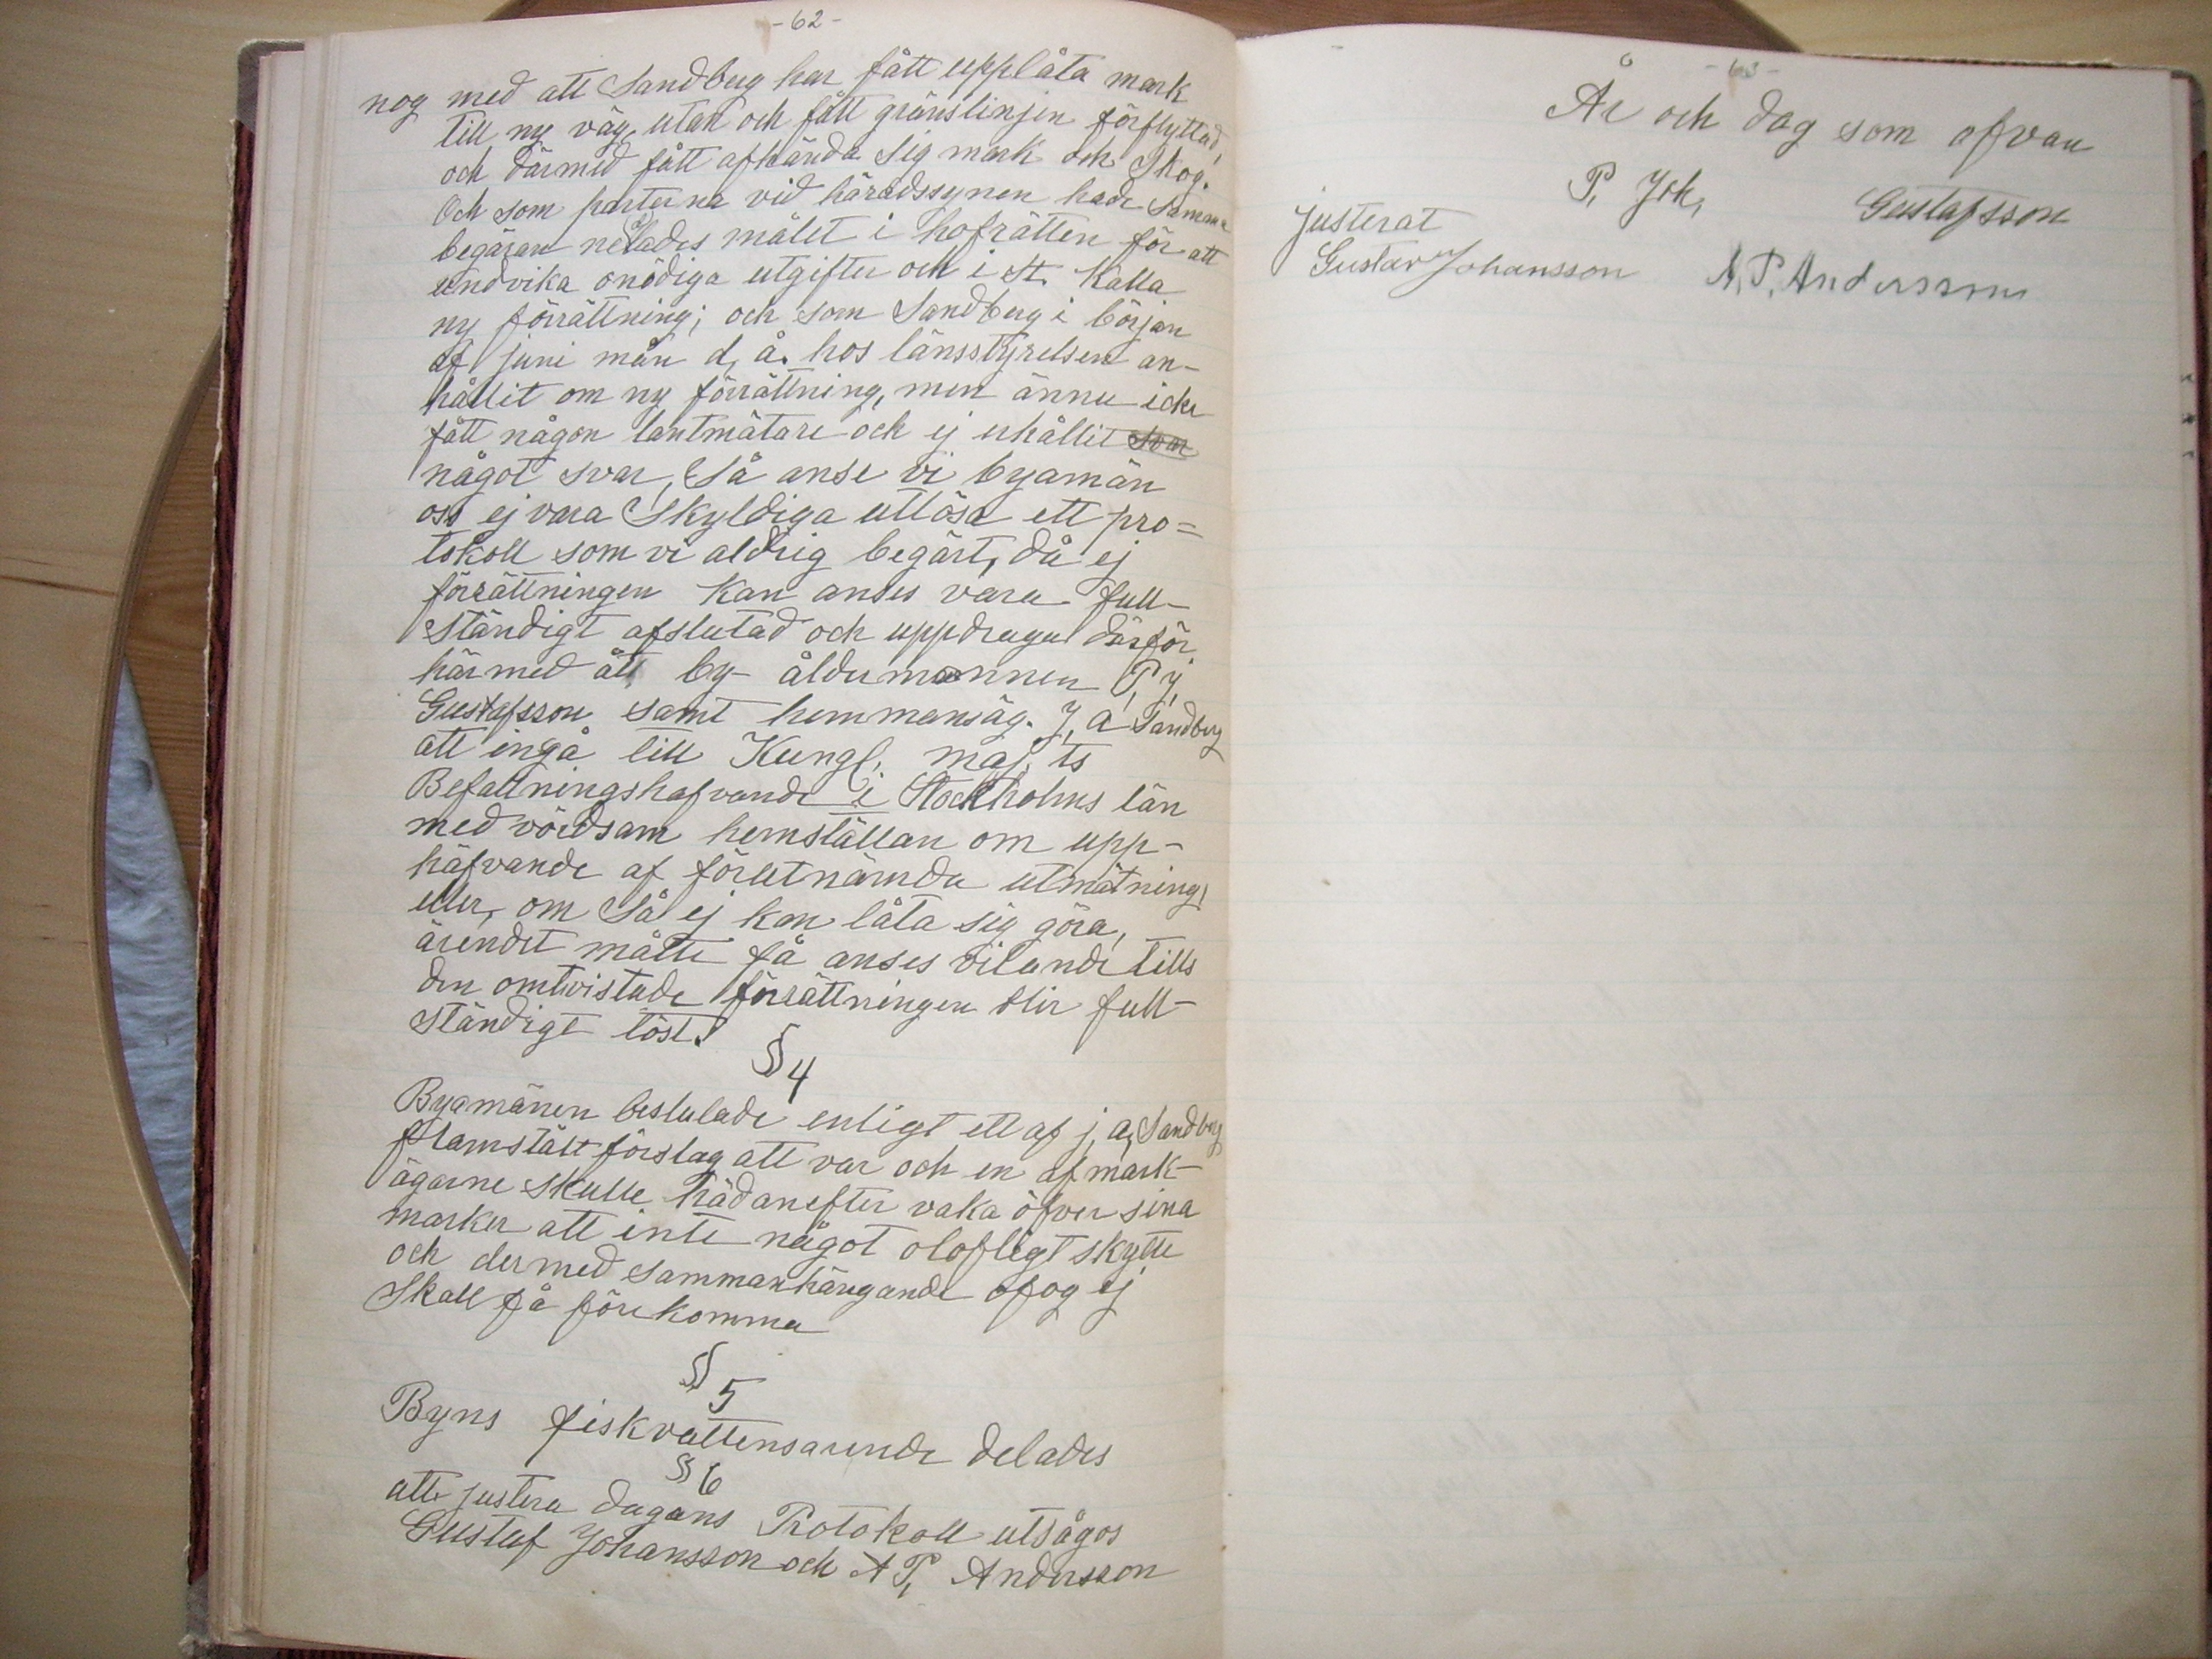 -62-
nog med att Sandberg har fått upplåta mark
till ny väg, utan och fått gränslinjen förflyttad,
och därmed fått afhända sig mark och Skog.
Och som parterna vid häradssynen hade Samma
begäran nekades målet i hofrätten för att
undvika onödiga utgifter och i st. Kalla
ny förrättning; och som Sandberg i början
af juni mån d, å. hos länsstyrelsen an-
hållit om ny förrättning, men ännu icke
fått någon lantmätare och ej erhållit svar
något svar, Så anse vi byamän
oss ej vara Skyldiga utlösa ett pro=
tokoll som vi aldrig begärt, då ej
förrättningen kan anses vara full-
ständigt afslutad och uppdraga därför
härmed åt by-åldermannen P, J,
Gustafsson samt hemmansäg. J, A Sandberg
att ingå till Kungl, maj, ts
Befallningshafvande i Stockholms län
med vördsam hemställan om upp-
häfvande af förutnämda utmätning,
eller, om Så ej kan låta sig göra,
ärendet måtte få anses vilande tills
den omtvistade förrättningen blir full-
ständigt löst.
§ 4
Byamänen beslutade enligt ett af j, a, Sandberg
framstält förslag att var och en af mark-
ägarne skulle hädanefter vaka öfver sina
marker att inte något olofligt skytte
och dermed sammanhängande ofog ej
Skall få förekomma
§ 5
Byns fiskvattensarende delades
§ 6
att justera dagens Protokoll utsågos
Gustaf Johansson och A P, Andersson
-63-
År och dag som ofvan
P, Joh, Gustafsson
justerat
Gustav Johansson A, P, Andersson